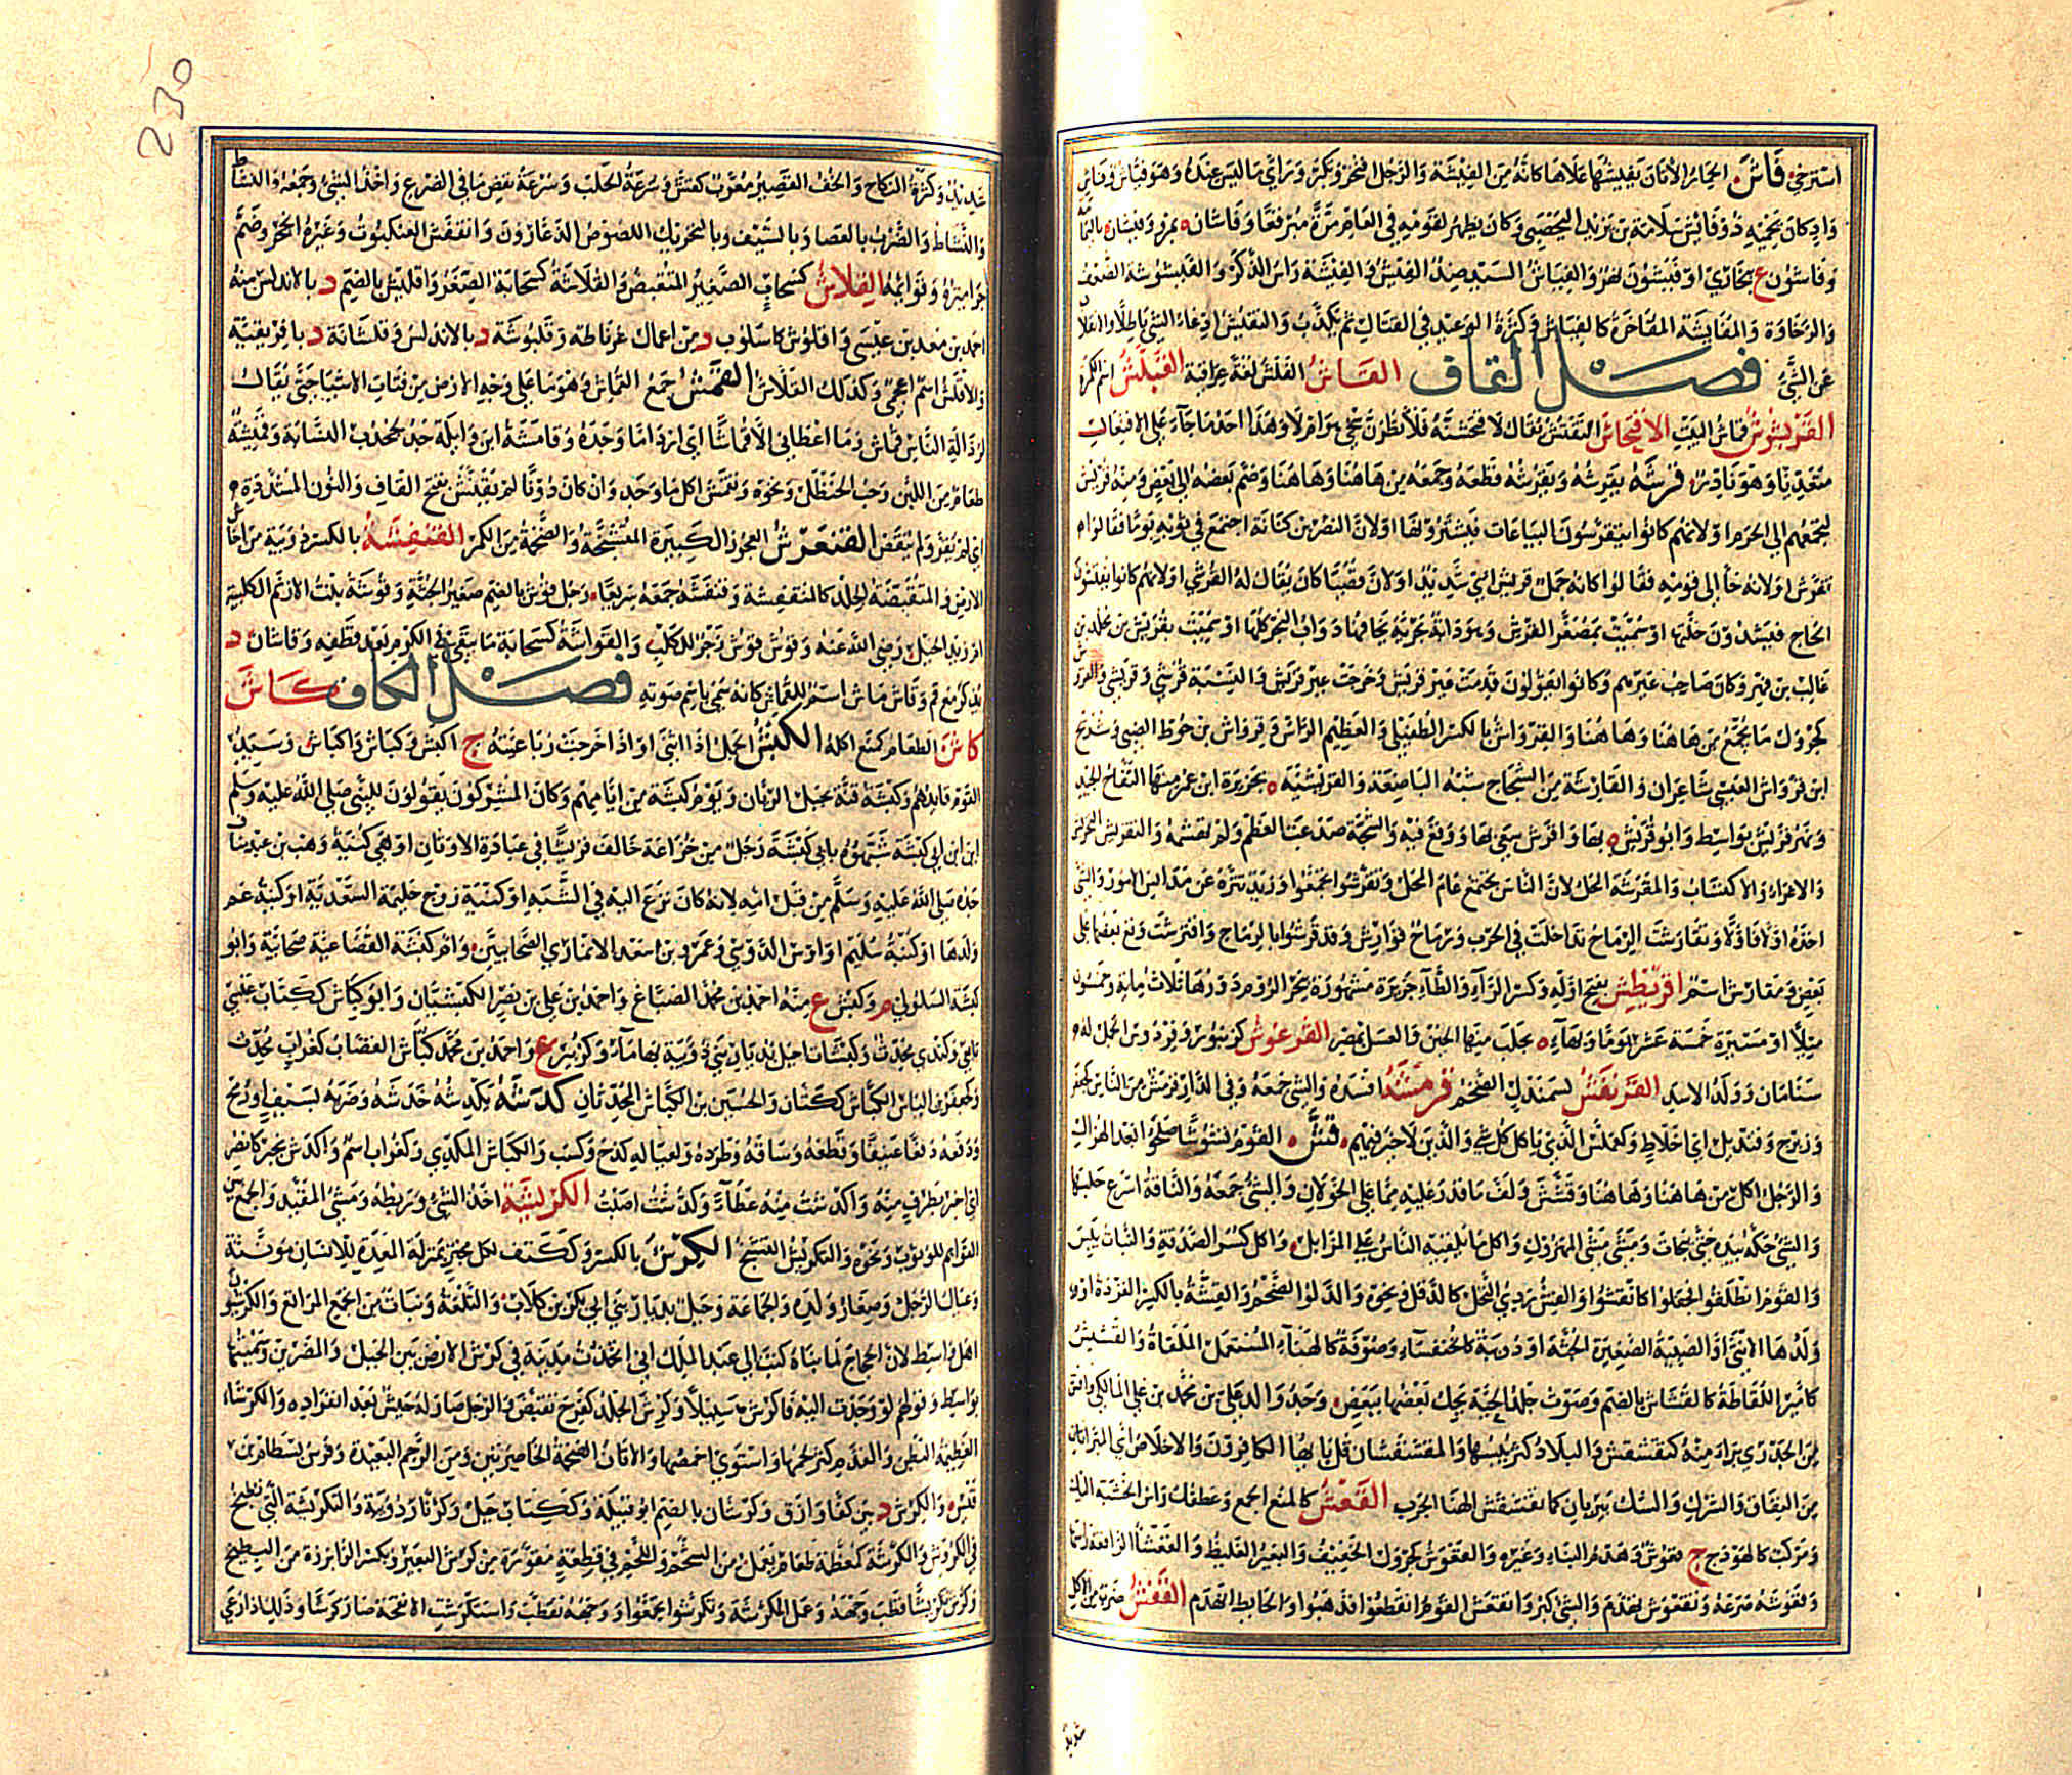 استرخى فاش الحمار الاتان يفيشها علاها كانه من الفيشة والرجل افتخر وتكبر وراى ما ليس عنده وهو فياش وفاش
واد كان يحميه ذو فائش سلامة بن يزيد اليحصبي وكان يظهر لقومه في العام مرة مبرقعا وفاشان ة بمرو وفيشان ة باليمامة
وفاشون ع ببخارى او فيشون نهر والفياش السيد ضد الفيش والفيشة راس الذكر والفيشوشة الضعف
والرخاوة والمفايشة المفاخرة كالفياش وكثرة الوعيد في القتال ثم يكذب والتفييش ادعاء الشي باطلا والانقلاب
عن الشي فصل القاف القاش القلش لغة عراقية القبلش اسم الكمرة
القربشوش قماش البيت الاقحاش التفتيش يقال لاقحشنه فلانظرن سخي هو ام لا وهذا احد ما جاء على الافتعال
متعديا وهو نادر قرشه يقرشه ويقرشه قطعه وجمعه من هاهنا وهاهنا وضم بعضه الى بعض ومنه قريش
لتجمعهم الى الحرم او لانهم كانوا يتقرشون البياعات فيشترونها او لان النضر بن كنانة اجتمع في ثوبه يوما فقالوا
تقرش او لانه جا الى قومه فقالوا كانه جمل قريش اي شديد او لان قصيا كان يقال له القرشي او لانهم كانوا يفتشون
الحاج فيسدون خلتها او سميت بمصغر القرش وهو دابة بحرية يخافها دواب البحر كلها او سميت بقريش بن مخلد بن
غالب بن فهر وكان صاحب عيرهم وكانوا يقولون قدمت عير قريش وخرجت عير قريش والنسبة قرشي وقريشي والقروش
كجرول ما يجمع من هاهنا وهاهنا والقرواش بالكسر الطفيلي والعظيم الراس وقرواش بن حوط الضبي وشريح
ابن قرواش العبسي شاعران والقارشة من الشجاج شبه الباضعة والقريشية ة بجزيرة ابن عمر منها التفاح الجيد
ونهر قريش بواسط وابو قريش ة بها واقرش سعى بها ووقع فيه والشجة صدعت العظم ولم تهشمه والتقريش التحريش
والاغراء والاكتساب والمقرشة المحل لان الناس يجتمع عام المحل وتقرشوا تجمعوا وزيد تنزه عن مدانس الامور والشي
اخذه اولا فاولا وتقارشت الرماح تداخلت في الحرب ورماح قوارش وقد قرشوا بالرماح واقترشت وقع بعضها على
بعض ومقارش اسم اقريطش بفتح اوله وكسر الراء والطاء جزيرة مشهورة ببحر الروم دورها ثلاث ماية وخمسون
ميلا او مسيرة خمسة عشر يوما وبهاء ة يجلب منها الجبن والعسل بمصر القرعوش كزنبور وفردوس الجمل له
سنامان وولد الاسد القرنفش لسمندل الضخم قرمشه افسده والشي جمعه وفي الدار قرمش من الناس كجعفر
وزبرج وقنديل اي اخلاط وكعملس الذي ياكل كل شي والذين لا خير فيهم قش القوم قشوشا صلحوا بعد الهزال
والرجل اكل من هاهنا وهاهنا وقشش ولف ما قدر عليه مما على الخوان والشي جمعه والناقة اسرع حلبها
والشي حكه بيده حتى تحات ومشى مشي المهزول واكل ما يلقيه الناس على المزابل واكل كسر الصدقة والنبات يبس
والقوم انطلقوا فجفلوا كانقشوا والقش ردي النخل كالدقل ونحوه والدلو الضخم والقشة بالكسر القردة او
ولدها الانثى والصبية الصغيرة الجثة او دويبة كالخنفساء وصوفة كالهناء المستعمل الملقاة والقشيش
كامير اللقاطة كالقشاش بالضم وصوت جلد الحية يحك بعضها ببعض وجد والد علي بن محمد بن علي المالكي واقش
من الجدري برا منه كتقشقش والبلاد كثر يبسها والمقشقشتان قل يا ايها الكافرون والاخلاص اي المبرئتان
من النفاق والشرك والمسك يبريان كما تقشقش الهنا الجرب القعش كالمنع الجمع وعطفك راس الخشبة اليك
ومركب كالهودج ج قعوش وهدم البناء وغيره والقعوش كجرول الخفيف والبعير الغليظ والقعشا الرافعة راسها
وقعوشه صرعه وتقعوش تهدم والشي كبر وانقعش القوم انقطعوا فذهبوا والحايط انهدم القفش ضرب من الاكل
شديد
230
شديد وكثرة النكاح والخف القصير معرب كفش وسرعة الحلب وسرعة نفض ما في الضرع واخذ الشي وجمعه والنشاط
والنشاط والضرب بالعصا وبالسيف وبالتحريك اللصوص الدعارون وانقفش العنكبوت وغيره انجحر وضم
جراميزه وقوائمه القلاش كسحاب الصغير المنقبض والقلاشة كسحابة الصغر واقليش بالضم د بالاندلس منه
احمد بن معد بن عيسى واقلوش كاسلوب د من اعمال غرناطة وقلبوشة د بالاندلس وقلشانة د بافريقية
والاقلش اسم اعجمي وكذلك القلاش القمش جمع القماش وهو ما على وجه الارض من فتات الاشيا حتى يقال
لرذالة الناس قماش وما اعطاني الا قماشا اي اردا ما وجده وقامشة ابن وايلة جد لجحدب النسابة وقميشة
طعام من اللبن وحب الحنظل ونحوه وتقمش اكل ما وجد وان كان دونا لم يقنش بفتح القاف والنون المشددة
اي لم يقر ولم ينقض القنعرش العجوز الكبيرة المتشنجة والضخمة من الكمر القنفشة بالكسر دويبة من احناش
الارض والمتقبضة الجلد كالمتقفشة وقنفشه جمعه سريعا رجل قوش بالضم صغير الجثة وقوشة بنت الازنم الكلبية
ام زيد الخيل رضي الله عنه وقوش قوش زجر للكلب والقواشة كسحابة ما يبقى في الكرم بعد قطفه وقاشان د
يذكر مع قم وقاش ماش اسم للقماش كانه سمي باسم صوته فصل الكاف كاش
كاش الطعام كمنع اكله الكبش الحمل اذا اثنى او اذا خرجت رباعيته ج اكبش وكباش واكباش وسيد
القوم قايدهم وكبشة قنة بجبل الريان ويوم كبشة من ايامهم وكان المشركون يقولون للنبي صلى الله عليه وسلم
ابن ابي كبشة شبهوه بابي كبشة رجل من خزاعة خالف قريشا في عبادة الاوثان او هي كنية وهب بن عبد مناف
جده صلى الله عليه وسلم من قبل امه لانه كان نزع اليه في الشبه او كنية زوج حليمة السعدية او كنية عم
ولدها او كنية سليم او اوس الدوسي وعمر بن سعد الانماري الصحابيين وام كبشة القضاعية صحابية وابو
كبشة السلولي م وكبش ع منه احمد بن محمد الصباغ واحمد بن علي بن نصر الكبشيان وابو كباش ككتاب عيشي
تابعي وكندي يحدث وكبشات اجبل بديار بني ذويبة بها ماء وكزبير ع واحمد بن محمد كباش القصاب كغراب محدث
وكجعفر بن الياس الكباش ككتان والحسين بن الكباش المحدثان كدشه يكدشه خدشه وضربه بسيف او رمح
ودفعه دفعا عنيفا وقطعه وساقه وطرده ولعياله كدح وكسب والكداش المكدي وكغراب اسم واكدش بخبر كانصر
اي اخبر بطرف منه واكدشت منه عطاء وكدشت اصبت الكربشة اخذ الشي وربطه ومشي المقيد والجمع بين
القوايم للوثوب ونحوه والتكربش التشنج الكرش بالكسر وككتف لكل مجتر بمنزلة المعدة للانسان مونثة
وعيال الرجل وصغار ولده والجماعة وجبل بديار بني ابي بكر بن كلاب والتلعة ونبات من انجع المراتع والكرشيون
اهل واسط لان الحجاج لما بناه كتب الى عبد الملك اني اتخذت مدينة في كرش الارض بين الجبل والمصرين وسميتها
بواسط وقولهم لو وجدت اليه فا كرش سبيلا وكرش الجلد كفرح تقبض والرجل صار له جيش بعد انفراده والكرشاء
العظيمة البطن والقدم كثر لحمها واستوى اخمصها والاتان الضخمة الخاصرتين ومن الرحم البعيدة وفرس بسطام بن
قيس والكرش د بين كفا وازاق وكرشان بالضم ابو قبيلة وككتاب جبل وكزنار دويبة والتكرشة التي تطبخ
في الكروش والكرشة كمعظمة طعام يعمل من الشحم واللحم في قطعة مقورة من كرش البعير وبكسر الرا بزرة من البطيخ
وكرش تكريشا قطب وجهه وعمل المكرشة وتكرشوا تجمعوا ووجهه تقطب واستكرشت الانفحة صارت كرشا وذلك اذا رعى